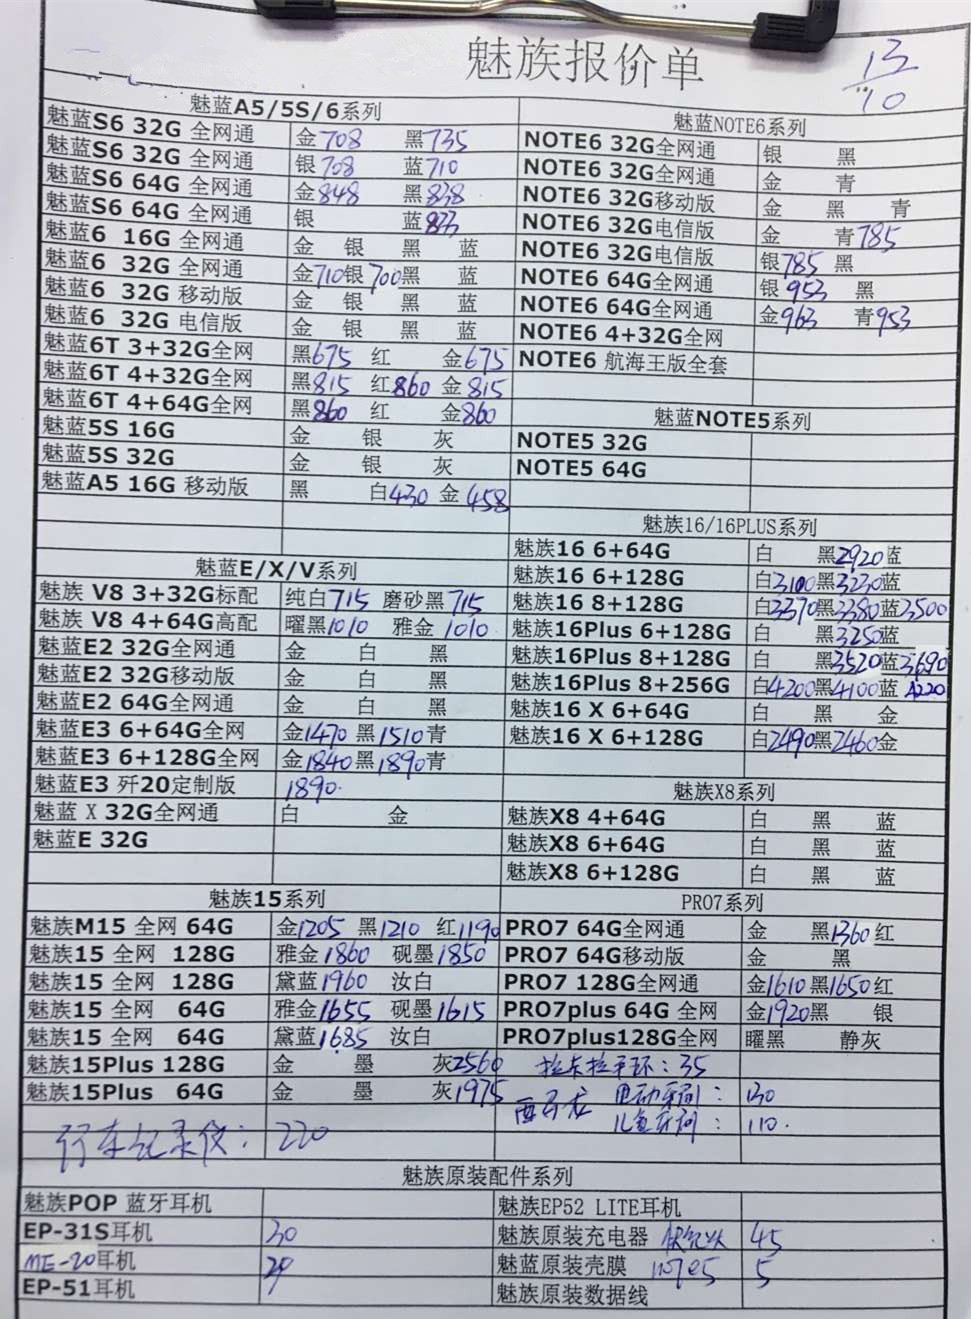 魅族报价单
13/10
魅蓝A5/5S/6系列
魅蓝S6 32G 全网通 金708 黑735
魅蓝S6 32G 全网通 银708 蓝710
魅蓝S6 64G 全网通 金848 黑838
魅蓝S6 64G 全网通 银 蓝833
魅蓝6 16G 全网通 金 银 黑 蓝
魅蓝6 32G 全网通 金710银700黑 蓝
魅蓝6 32G 移动版 金 银 黑 蓝
魅蓝6 32G 电信版 金 银 黑 蓝
魅蓝6T 3+32G全网 黑675 红 金675
魅蓝6T 4+32G全网 黑815 红860 金815
魅蓝6T 4+64G全网 黑860 红 金860
魅蓝5S 16G 金 银 灰
魅蓝5S 32G 金 银 灰
魅蓝A5 16G 移动版 黑 白430 金458
魅蓝E/X/V系列
魅族 V8 3+32G标配 纯白715 磨砂黑715
魅族 V8 4+64G高配 曜黑1010 雅金1010
魅蓝E2 32G全网通 金 白 黑
魅蓝E2 32G移动版 金 白 黑
魅蓝E2 64G全网通 金 白 黑
魅蓝E3 6+64G全网 金1470 黑1510青
魅蓝E3 6+128G全网 金1840黑1890青
魅蓝E3 歼20定制版 1890.
魅蓝 X 32G全网通 白 金
魅蓝E 32G
魅族15系列
魅族M15 全网 64G 金1205 黑1210 红1190
魅族15 全网 128G 雅金1860 砚墨1850
魅族15 全网 128G 黛蓝1960 汝白
魅族15 全网 64G 雅金1655 砚墨1615
魅族15 全网 64G 黛蓝1685 汝白
魅族15Plus 128G 金 墨 灰2560
魅族15Plus 64G 金 墨 灰1975
行车记录仪: 220
魅蓝NOTE6系列
NOTE6 32G全网通 银 黑
NOTE6 32G全网通 金 青
NOTE6 32G移动版 金 黑 青
NOTE6 32G电信版 金 青785
NOTE6 32G电信版 银785 黑
NOTE6 64G全网通 银953 黑
NOTE6 64G全网通 金963 青953
NOTE6 4+32G全网
NOTE6 航海王版全套
魅蓝NOTE5系列
NOTE5 32G
NOTE5 64G
魅族16/16PLUS系列
魅族16 6+64G 白 黑2920蓝
魅族16 6+128G 白3100黑3230蓝
魅族16 8+128G 白3370黑3380蓝3500
魅族16Plus 6+128G 白 黑3250蓝
魅族16Plus 8+128G 白 黑3520蓝3690
魅族16Plus 8+256G 白4200黑4100蓝4220
魅族16 X 6+64G 白 黑 金
魅族16 X 6+128G 白2490黑2460金
魅族X8系列
魅族X8 4+64G 白 黑 蓝
魅族X8 6+64G 白 黑 蓝
魅族X8 6+128G 白 黑 蓝
PRO7系列
PRO7 64G全网通 金 黑1360红
PRO7 64G移动版 金 黑
PRO7 128G全网通 金1610黑1650红
PRO7plus 64G 全网 金1920黑 银
PRO7plus128G全网 曜黑 静灰
拉卡拉手环: 35
电动牙刷: 130
儿童牙刷: 110.
魅族原装配件系列
魅族POP 蓝牙耳机
EP-31S耳机 30
ME-20耳机 29
EP-51耳机
魅族EP52 LITE耳机
魅族原装充电器 45
魅蓝原装壳膜 note5 5
魅族原装数据线